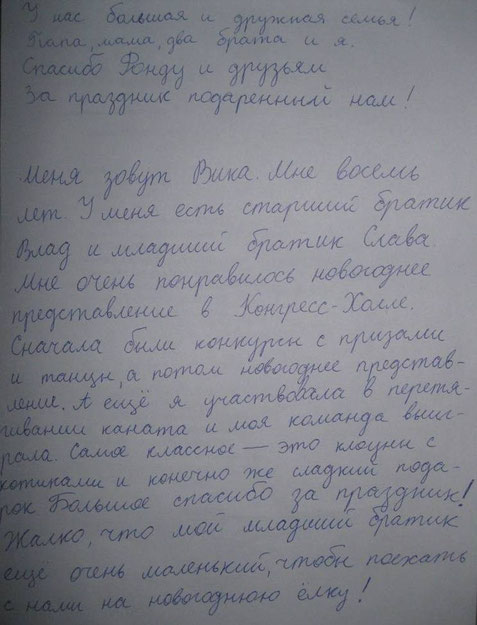 У нас большая и дружная семья!
Папа, мама, два брата и я.
Спасибо Фонду и друзьям
За праздник подаренный нам!
Меня зовут Вика. Мне восемь
лет. У меня есть старший братик
Влад и младший братик Слава.
Мне очень понравилось новогоднее
представление в Конгресс-Холле.
Сначала были конкурсы с призами
и танцы, а потом новогоднее представ-
ление. А ещё я участвовала в перетя-
гивании каната и моя команда выиг-
рала. Самое классное — это клоуны с
котиками и конечно же сладкий пода-
рок Большое спасибо за праздник!
Жалко, что мой младший братик
ещё очень маленький, чтобы поехать
с нами на новогоднюю ёлку!